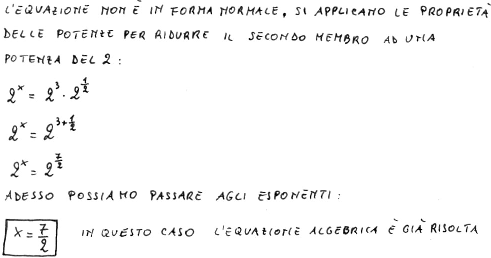 L'EQUAZIONE NON È IN FORMA NORMALE, SI APPLICANO LE PROPRIETÀ
DELLE POTENZE PER RIDURRE IL SECONDO MEMBRO AD UNA
POTENZA DEL 2:
2^x = 2^3 · 2^{1/2}
2^x = 2^{3+1/2}
2^x = 2^{7/2}
ADESSO POSSIAMO PASSARE AGLI ESPONENTI:
x = 7/2 IN QUESTO CASO L'EQUAZIONE ALGEBRICA È GIÀ RISOLTA